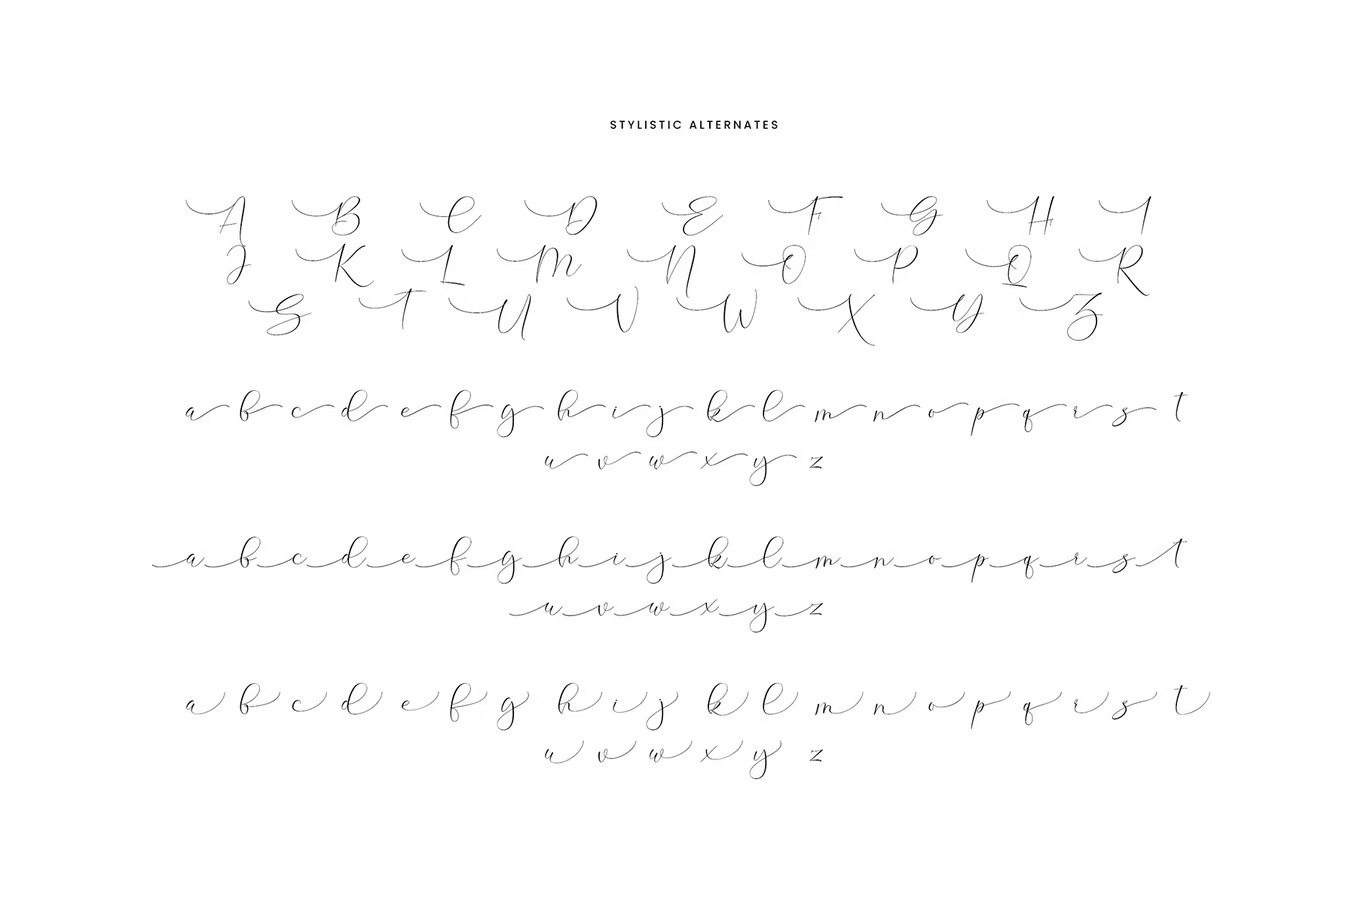 STYLISTIC ALTERNATES
A B C D E F G H I
J K L M N O P Q R
S T U V W X Y Z
a b c d e f g h i j k l m n o p q r s t
u v w x y z
a b c d e f g h i j k l m n o p q r s t
u v w x y z
a b c d e f g h i j k l m n o p q r s t
u v w x y z